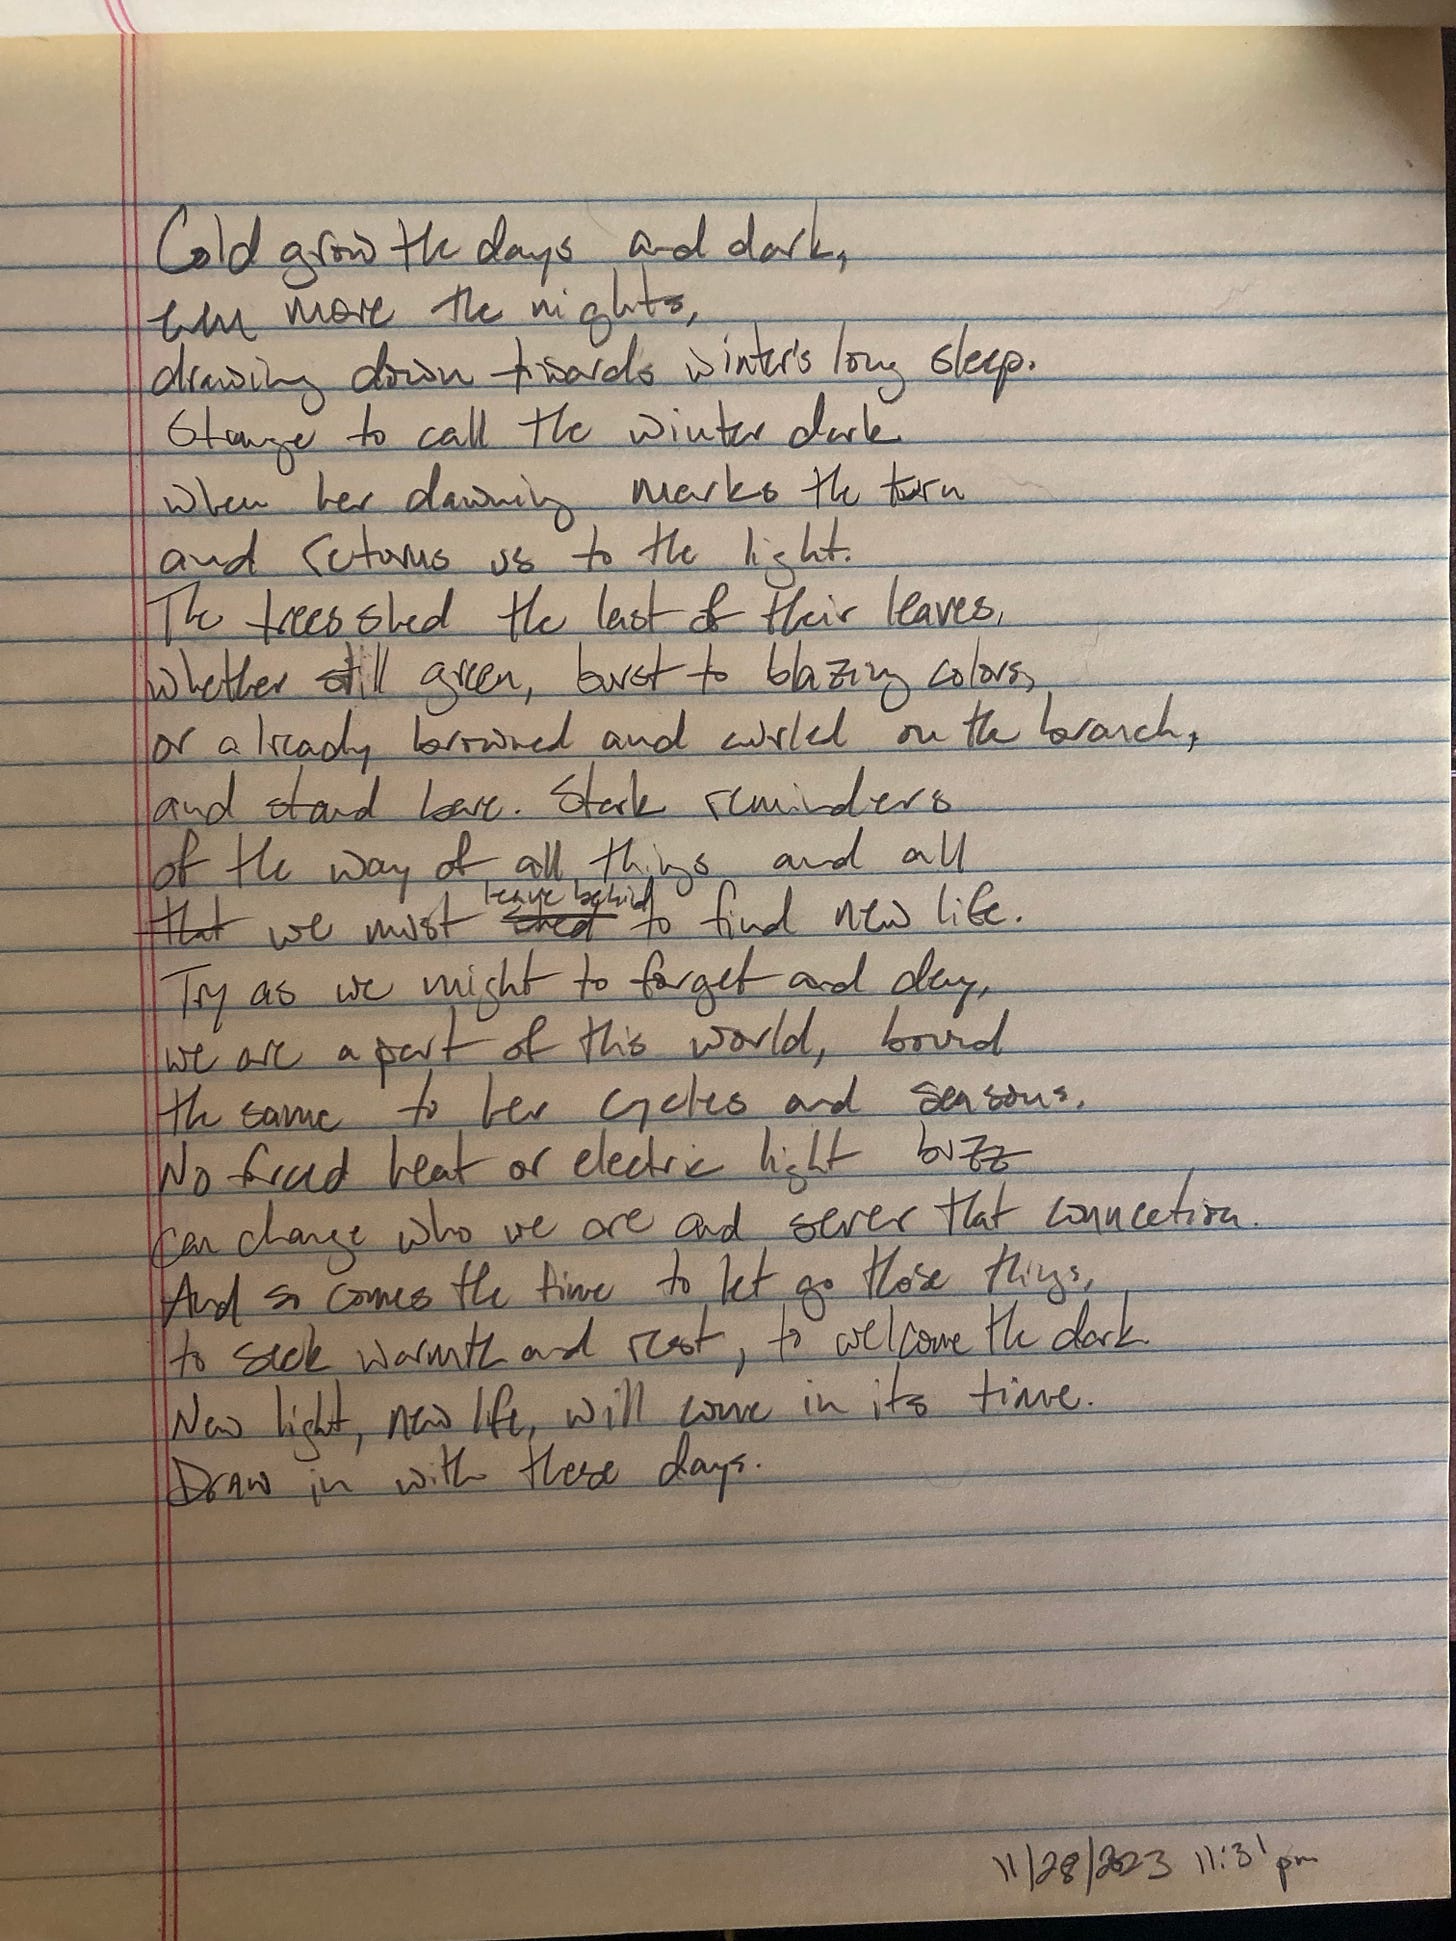 Cold grow the days and dark,
even more the nights,
drawing down towards winter's long sleep.
Strange to call the winter dark
when her dawning marks the turn
and returns us to the light.
The trees shed the last of their leaves,
whether still green, burst to blazing colors,
or already browned and curled on the branch,
and stand bare. Stark reminders
of the way of all things and all
leave behind
that we must shed to find new life.
Try as we might to forget and deny,
we are a part of this world, bound
the same to her cycles and seasons.
No forced heat or electric light buzz
can change who we are and sever that connection.
And so comes the time to let go those things,
to seek warmth and rest, to welcome the dark.
New light, new life, will come in its time.
Draw in with these days.
11/28/2023 11:31 pm